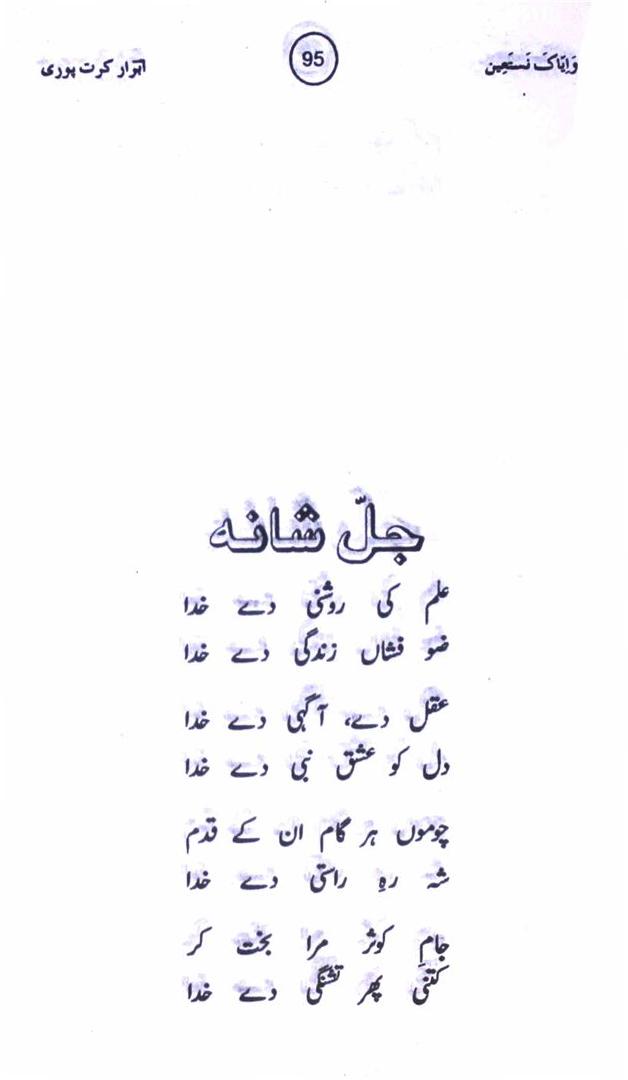 وَاِیّاکَ نَستَعِین
95
ابرار کرت پوری
جلّ شانہ
علم کی روشنی دے خدا
ضو فشاں زندگی دے خدا
عقل دے، آگہی دے خدا
دل کو عشق نبی دے خدا
چوموں ہر گام ان کے قدم
شہ رہِ راستی دے خدا
جامِ کوثر مرا بخت کر
کتنی پھر تشنگی دے خدا